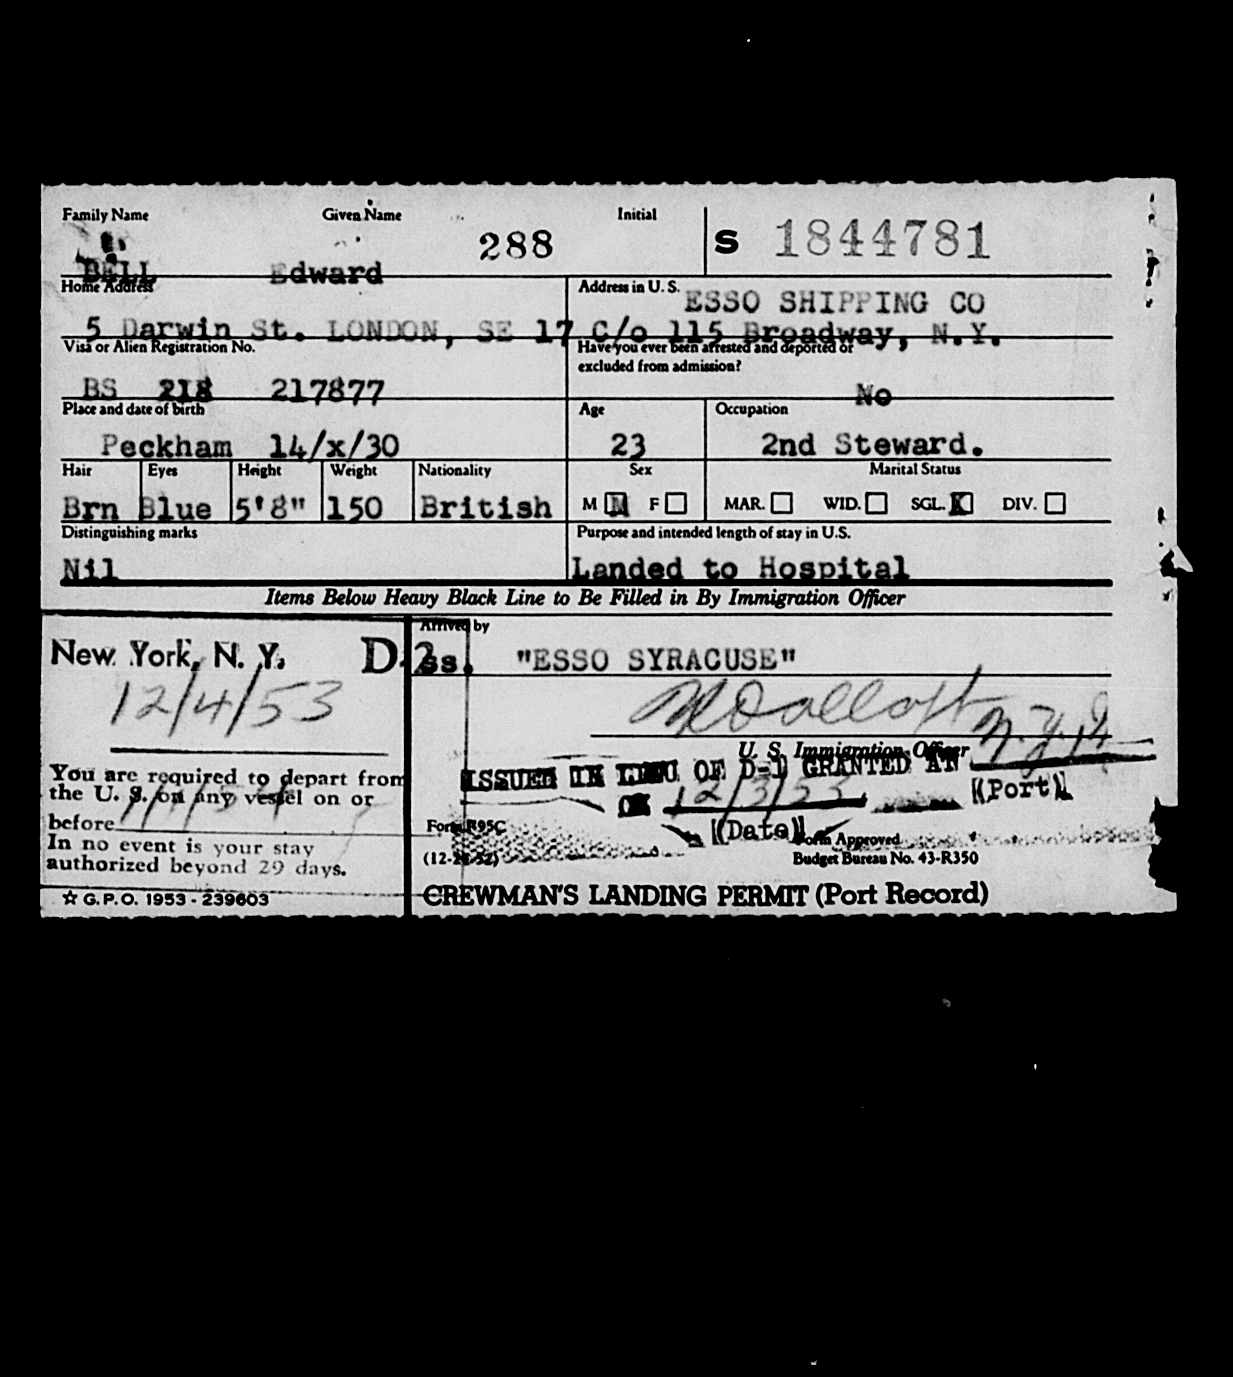 Family Name Given Name Initial
288 S 1844781
BELL Edward
Home Address Address in U. S. ESSO SHIPPING CO
5 Darwin St. LONDON, SE 17 C/o 115 Broadway, N.Y.
Visa or Alien Registration No. Have you ever been arrested and deported or
excluded from admission?
BS 218 217877 No
Place and date of birth Age Occupation
Peckham 14/x/30 23 2nd Steward.
Hair Eyes Height Weight Nationality Sex Marital Status
Brn Blue 5'8" 150 British M F MAR. WID. SGL. X DIV.
Distinguishing marks Purpose and intended length of stay in U.S.
Nil Landed to Hospital
Items Below Heavy Black Line to Be Filled in By Immigration Officer
Arrived by
New York, N. Y. D.2 ss. "ESSO SYRACUSE"
12/4/53
U. S. Immigration Officer
ISSUED IN LIEU OF D-1 GRANTED AT N.Y.
(Port)
ON 12/3/53
(Date)
You are required to depart from
the U. S. on any vessel on or
before
In no event is your stay
authorized beyond 29 days.
☆ G.P.O. 1953 - 239603
Form R95C
(12-24-52)
Form Approved
Budget Bureau No. 43-R350
CREWMAN'S LANDING PERMIT (Port Record)